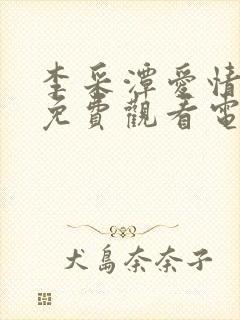 李采潭愛情
免費觀看電
犬島奈奈子